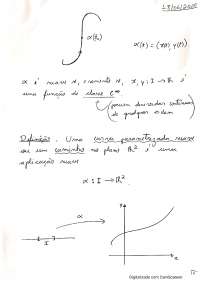 α(t₀)
α(t) = (x(t), y(t))
α é suave se, e somente se, x, y : I → ℝ é
uma função de classe C^∞
(possuem derivadas contínuas
de qualquer ordem
Definição: Uma curva parametrizada suave
ou um caminho no plano ℝ² é uma
aplicação suave
α : I → ℝ².
α
I
x
Digitalizado com CamScanner